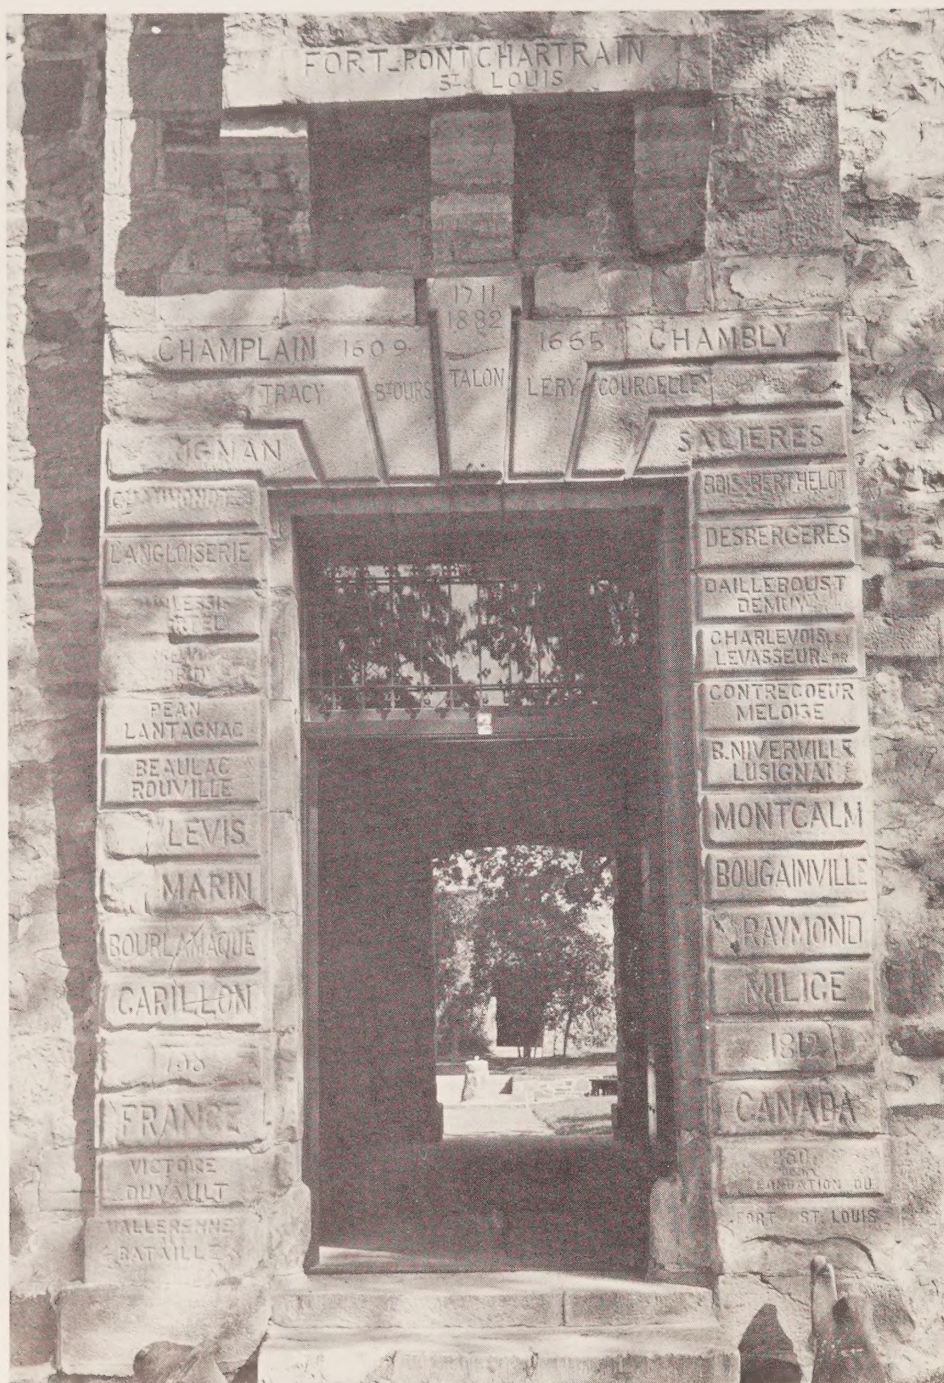 FORT-PONTCHARTRAIN
ST. LOUIS
1711
1882
CHAMPLAIN 1609
1665 CHAMBLY
TRACY
ST OURS
TALON
LERY
COURCELLE
SALIERES
L'ANGLOISERIE
PEAN
LANTAGNAC
BEAULAC
ROUVILLE
LEVIS
MARIN
BOURLAMAQUE
CARILLON
FRANCE
VICTOIRE
DUVAULT
BATAILLE
BOIS-BERTHELOT
DESBERGERES
DAILLEBOUST
DEMUY
CHARLEVOIS
LEVASSEUR
CONTRECOEUR
MELOISE
B. NIVERVILLE
LUSIGNAN
MONTCALM
BOUGAINVILLE
RAYMOND
MILICE
1812
CANADA
FORT ST. LOUIS